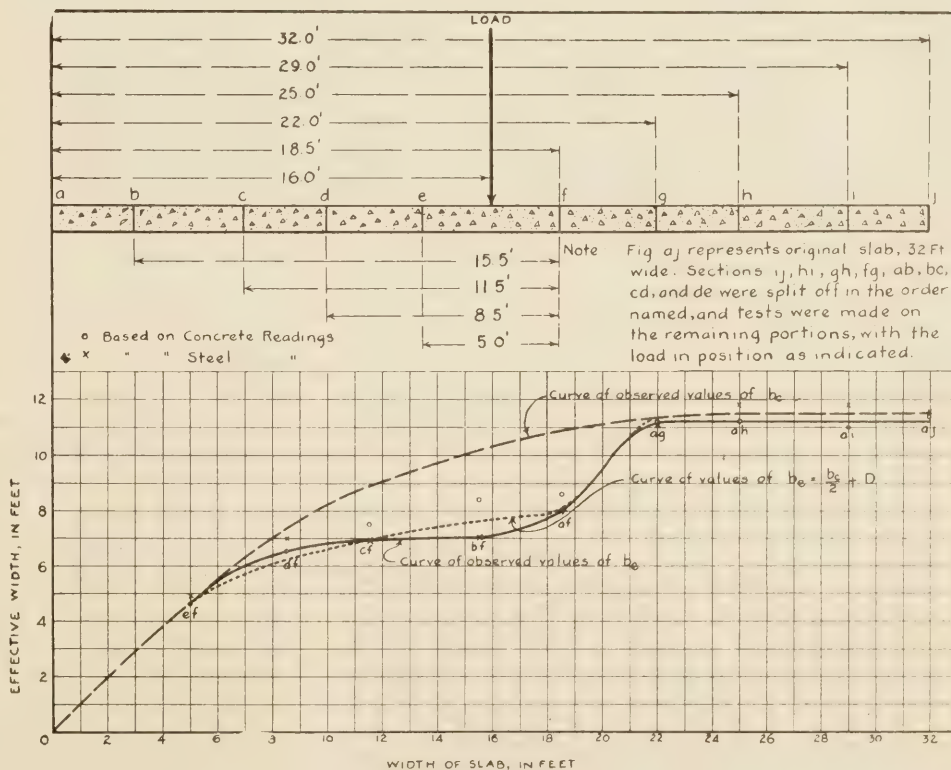 LOAD
32.0'
29.0'
25.0'
22.0'
18.5'
16.0'
a b c d e f g h i j
15 5'
11 5'
8 5'
5 0'
Note Fig aj represents original slab, 32 Ft
wide. Sections ij, hi, gh, fg, ab, bc,
cd, and de were split off in the order
named, and tests were made on
the remaining portions, with the
load in position as indicated.
o Based on Concrete Readings
x " " Steel "
EFFECTIVE WIDTH, IN FEET
12
10
8
6
4
2
0
Curve of observed values of bc
Curve of values of be = bc/2 + D
Curve of observed values of be
ef df cf bf af ag ah ai aj
0 2 4 6 8 10 12 14 16 18 20 22 24 26 28 30 32
WIDTH OF SLAB, IN FEET